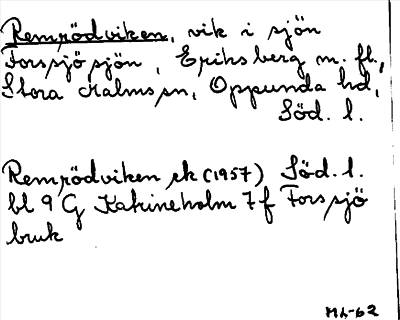 Remrödviken, vik i sjön
Forssjösjön, Eriksberg m. fl.,
Stora Malms sn, Oppunda hd,
Söd. l.
Remrödviken ek (1957) Söd. l.
bl 9 G Katrineholm 7f Forssjö
bruk